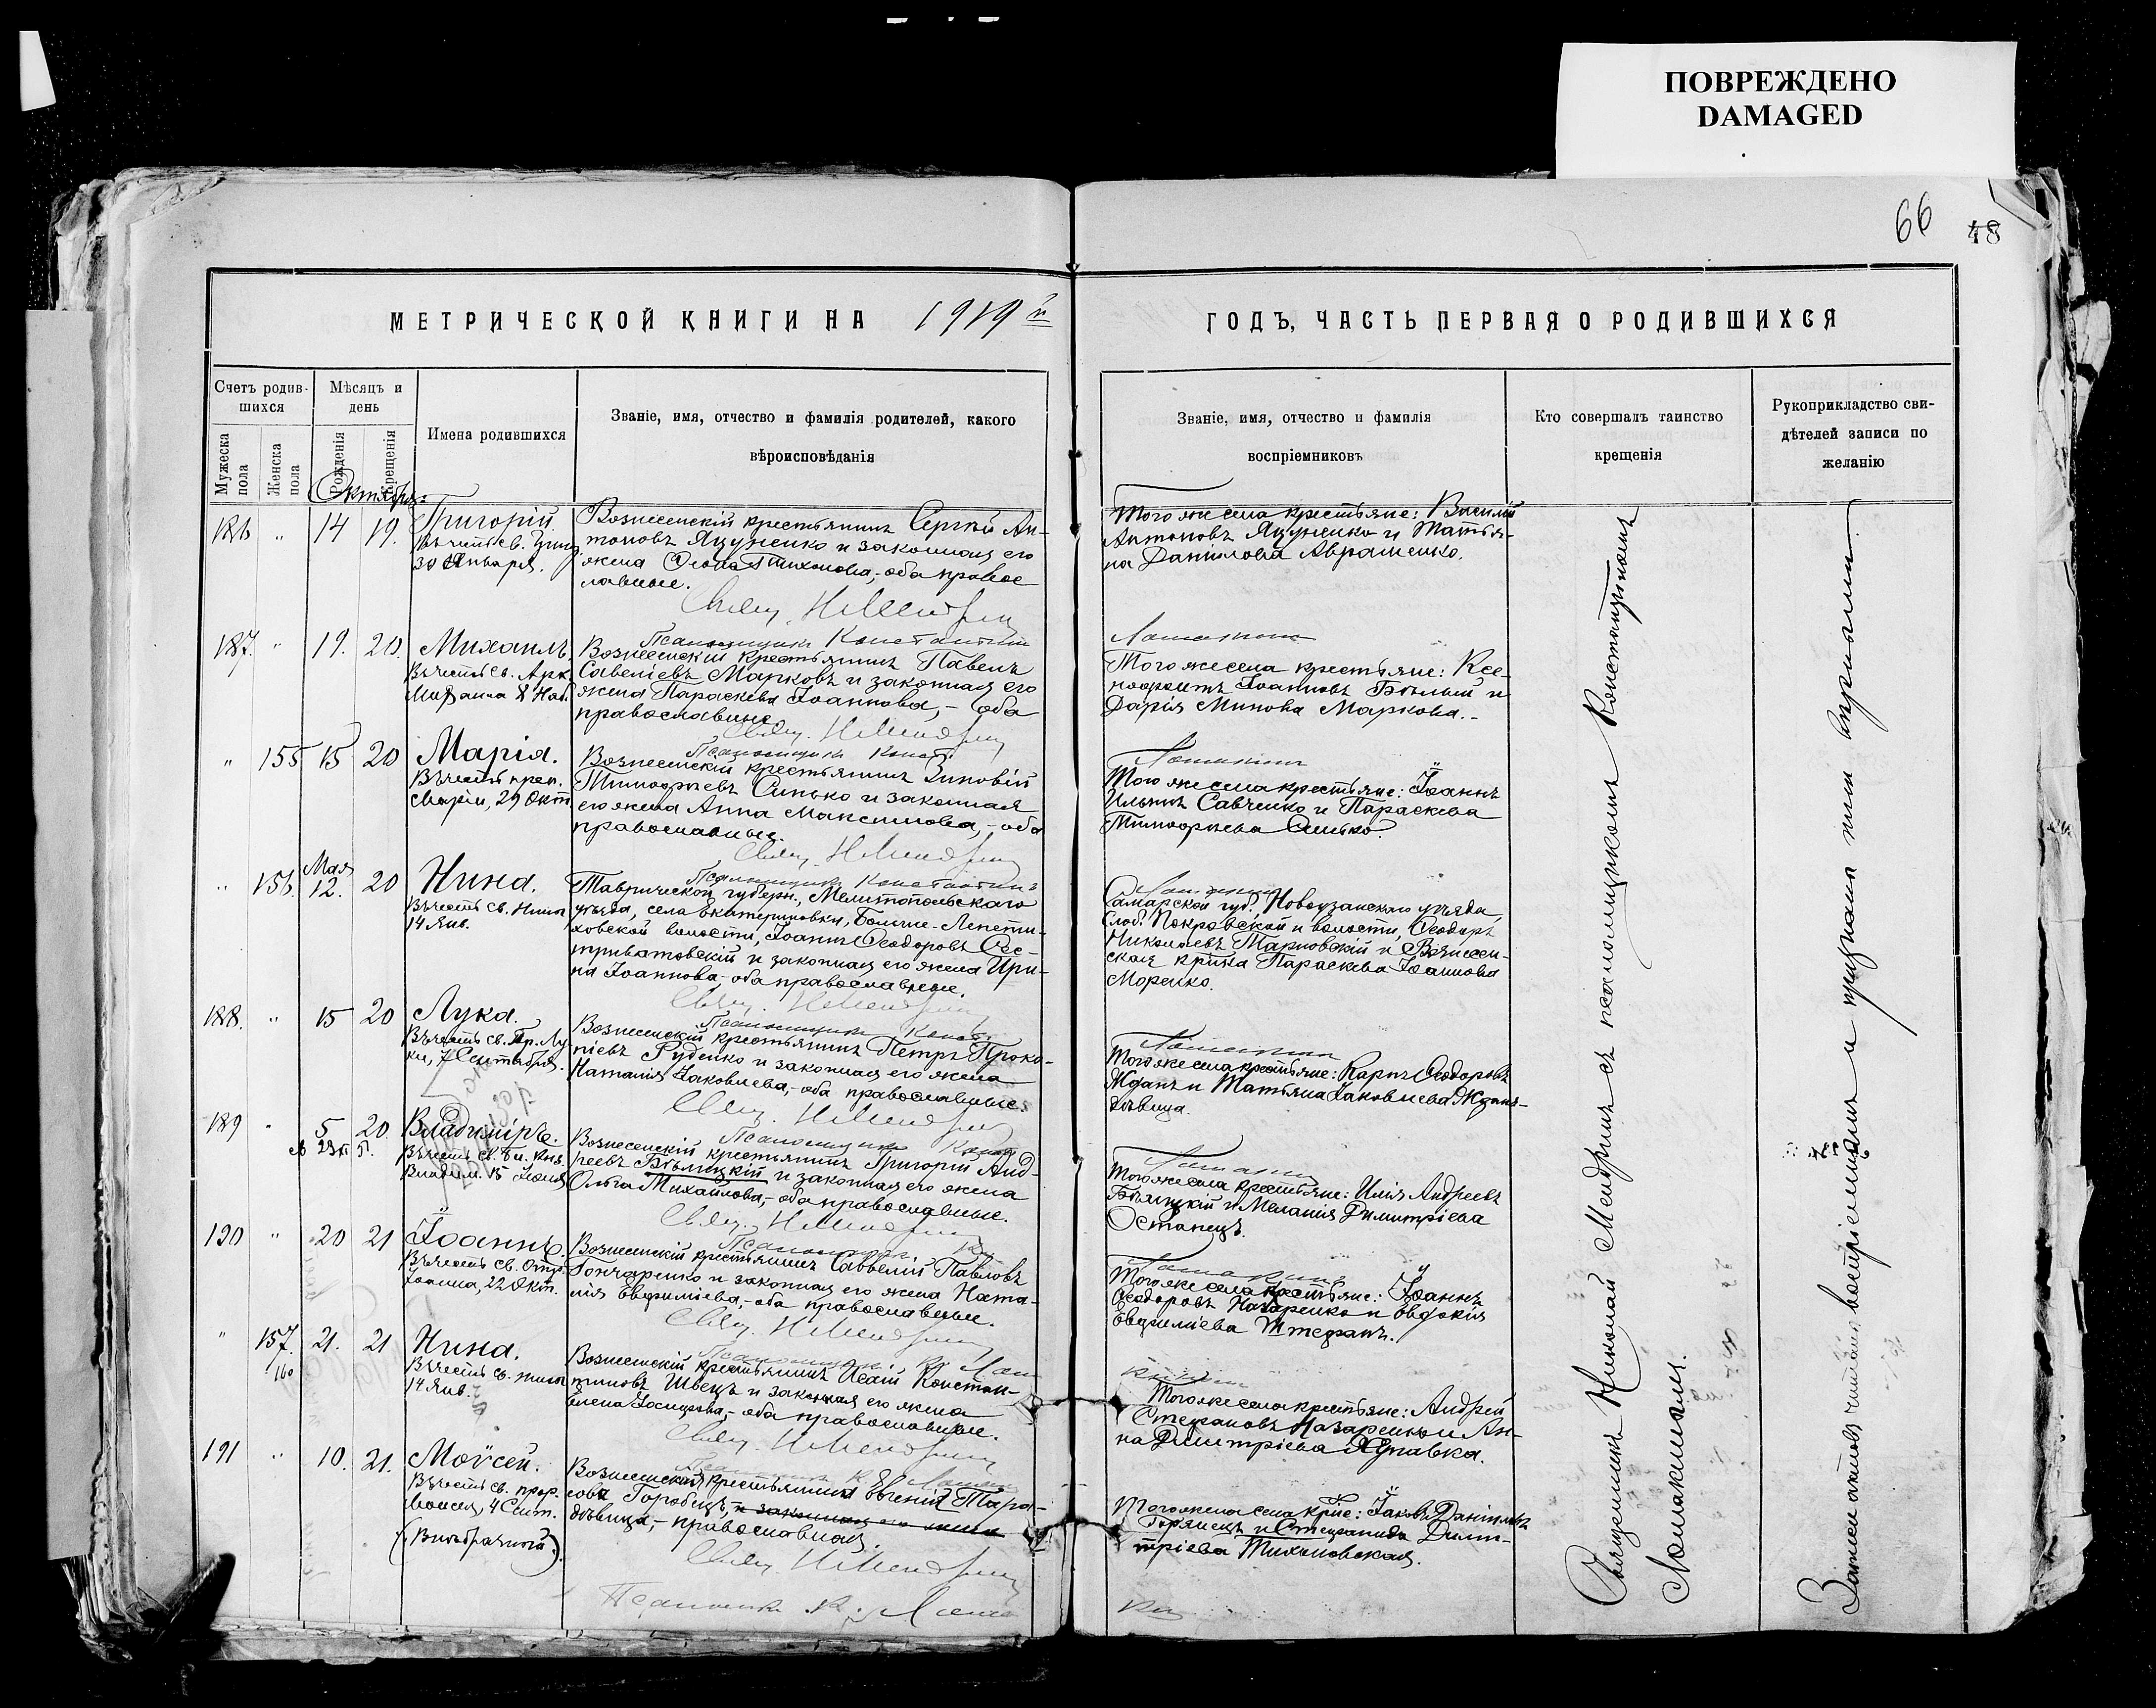 ПОВРЕЖДЕНО
DAMAGED
66
48
МЕТРИЧЕСКОЙ КНИГИ НА 1919 й
ГОДЪ, ЧАСТЬ ПЕРВАЯ О РОДИВШИХСЯ
Счетъ родив-
шихся
Мужеска
пола
Женска
пола
Мѣсяцъ и
день
Рожденія
Крещенія
Имена родившихся
Званіе, имя, отчество и фамилія родителей, какого
вѣроисповѣданія
Званіе, имя, отчество и фамилія
воспріемниковъ
Кто совершалъ таинство
крещенія
Рукоприкладство сви-
дѣтелей записи по
желанію
Октября:
186 " 14 19.
Григорій.
Въ честь св.
30 Января.
Вознесенскій крестьянинъ Сергѣй Ан-
тоновъ Яцуненко и законная его
жена Тихонова,- оба правос-
лавные.
Свящ. Н Мендрин
Того же села крестьяне: Василій
Антоновъ Яцуненко и Татья-
на Даніилова Авраменко.
187. " 19. 20.
Михаилъ.
Въ честь св. Арх.
Михаила 8 Нояб.
Псаломщикъ Константин
Вознесенскій крестьянинъ Павелъ
Савеліевъ Марковъ и законная его
жена Параскева Іоаннова,- оба
православные.
Свящ. Н Мендрин
Того же села крестьяне: Ксе-
нофонтъ Іоанновъ Бѣлый и
Дарія Минова Маркова.-
" 155 15 20
Марія.
Въ честь преп.
Маріи, 29 Окт.
Псаломщикъ Конст.
Вознесенскій крестьянинъ Зиновій
Тимофеевъ Синько и законная
его жена Анна Максимова,- оба
православные.
Свящ. Н Мендрин
Того же села крестьяне: Іоаннъ
Ильинъ Савченко и Параскева
Тимофеева Синько.
Мая
" 156. 12. 20
Нина.
Въ честь св. Нины
14 Янв.
Псаломщикъ Константинъ
Таврической губерн., Мелитопольскаго
уѣзда, села Екатериновки, Больше-Лепети-
ховской волости, Іоаннъ Ѳеодоровъ
и законная его жена Ири-
на Іоаннова,- оба православные.
Свящ. Н Мендрин
Самарской губ., Новоузенскаго уѣзда,
Слоб. Покровской и волости, Ѳеодоръ
Николаевъ Тарновскій и Вознесен-
ская кр-нка Параскева Іоаннова
Моренко.
188. " 15 20
Лука.
Въ честь св. Пр. Лу-
ки, 7 Сентября.
Псаломщикъ Конст.
Вознесенскій крестьянинъ Петръ Проко-
піевъ Руденко и законная его жена
Наталія Іаковлева,- оба православные.
Свящ. Н Мендрин
Того же села крестьяне: Карпъ Ѳеодоровъ
Жданъ и Татьяна Іаковлева Жданъ-
дѣвица.
189 " 5 20
Владиміръ.
Въ честь св. Бл. Кнз.
Владим. 15 Іюля
Псаломщикъ
Вознесенскій крестьянинъ Григорій Анд-
реевъ Бѣлицкій и законная его жена
Ольга Михайлова,- оба православные.
Свящ. Н Мендрин
Того же села крестьяне: Илія Андреевъ
Бѣлицкій и Меланія Димитріева
Останецъ.
190 " 20 21
Іоаннъ.
Въ честь св. Отр.
Іоанна, 22 Окт.
Псаломщикъ
Вознесенскій крестьянинъ Савелій Павловъ
Гончаренко и законная его жена Ната-
лія Евфиміева,- оба православные.
Свящ. Н Мендрин
Того же села крестьяне: Іоаннъ
Ѳеодоровъ Назаренко и Евдокія
Евфиміева Штефанъ.
" 157. 21. 21
160
Нина.
Въ честь св. Нины
14 Янв.
Вознесенскій крестьянинъ Исаій Констан-
тиновъ Швецъ и законная его жена
Елена Іосифова,- оба православные.
Свящ. Н Мендрин
Того же села крестьяне: Андрей
Стефановъ Назаренко и Ан-
на Димитріева
191 " 10. 21.
Моѵсей.
Въ честь св. прор.
Моисея, 4 Сент.
(Внѣбрачный).
Вознесенская крестьянка Евгенія Тара-
сова Горобецъ, и законная его жена
дѣвица,- православная.
Свящ. Н Мендрин
Того же села кр-не: Іаковъ Даніиловъ
и Стефанида Дими-
тріева Тихановская.
Священникъ Николай Мендринъ съ псаломщикомъ Константиномъ
Ломакинымъ.
Записи актовъ читаны воспріемникамъ и признаны ими вѣрными.